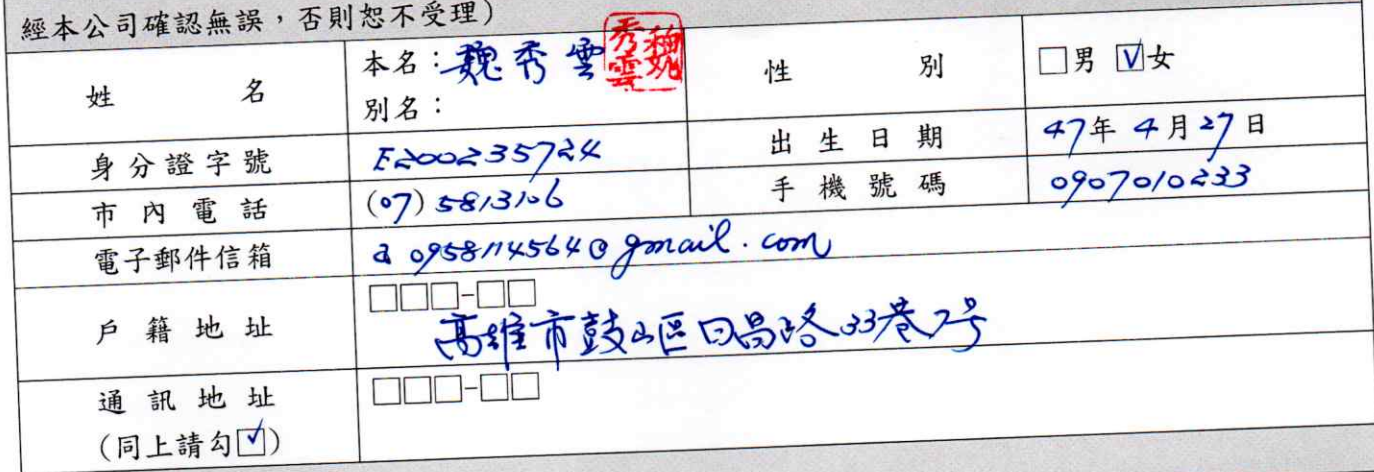 經本公司確認無誤，否則恕不受理)
姓名
本名：魏秀雲
秀雲魏
別名：
性別
□男 ☑女
身分證字號
E200235724
出生日期
47年4月27日
市內電話
(07) 5813106
手機號碼
0907010233
電子郵件信箱
a0958114564@gmail.com
戶籍地址
□□□-□□
高雄市鼓山區日昌路33巷7号
通訊地址
(同上請勾☑)
□□□-□□